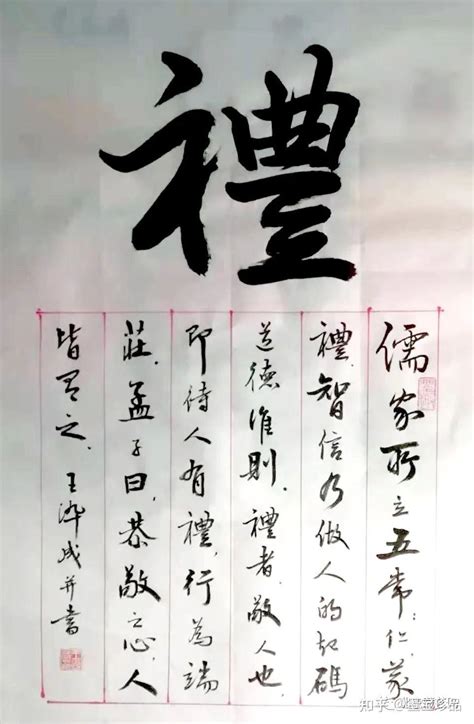 禮
儒家所立五常：仁、義
禮、智信乃做人的起碼
道德准則。禮者，敬人也，
即待人有禮，行為端
莊。孟子曰，恭敬之心，人
皆有之。王成并書
知乎